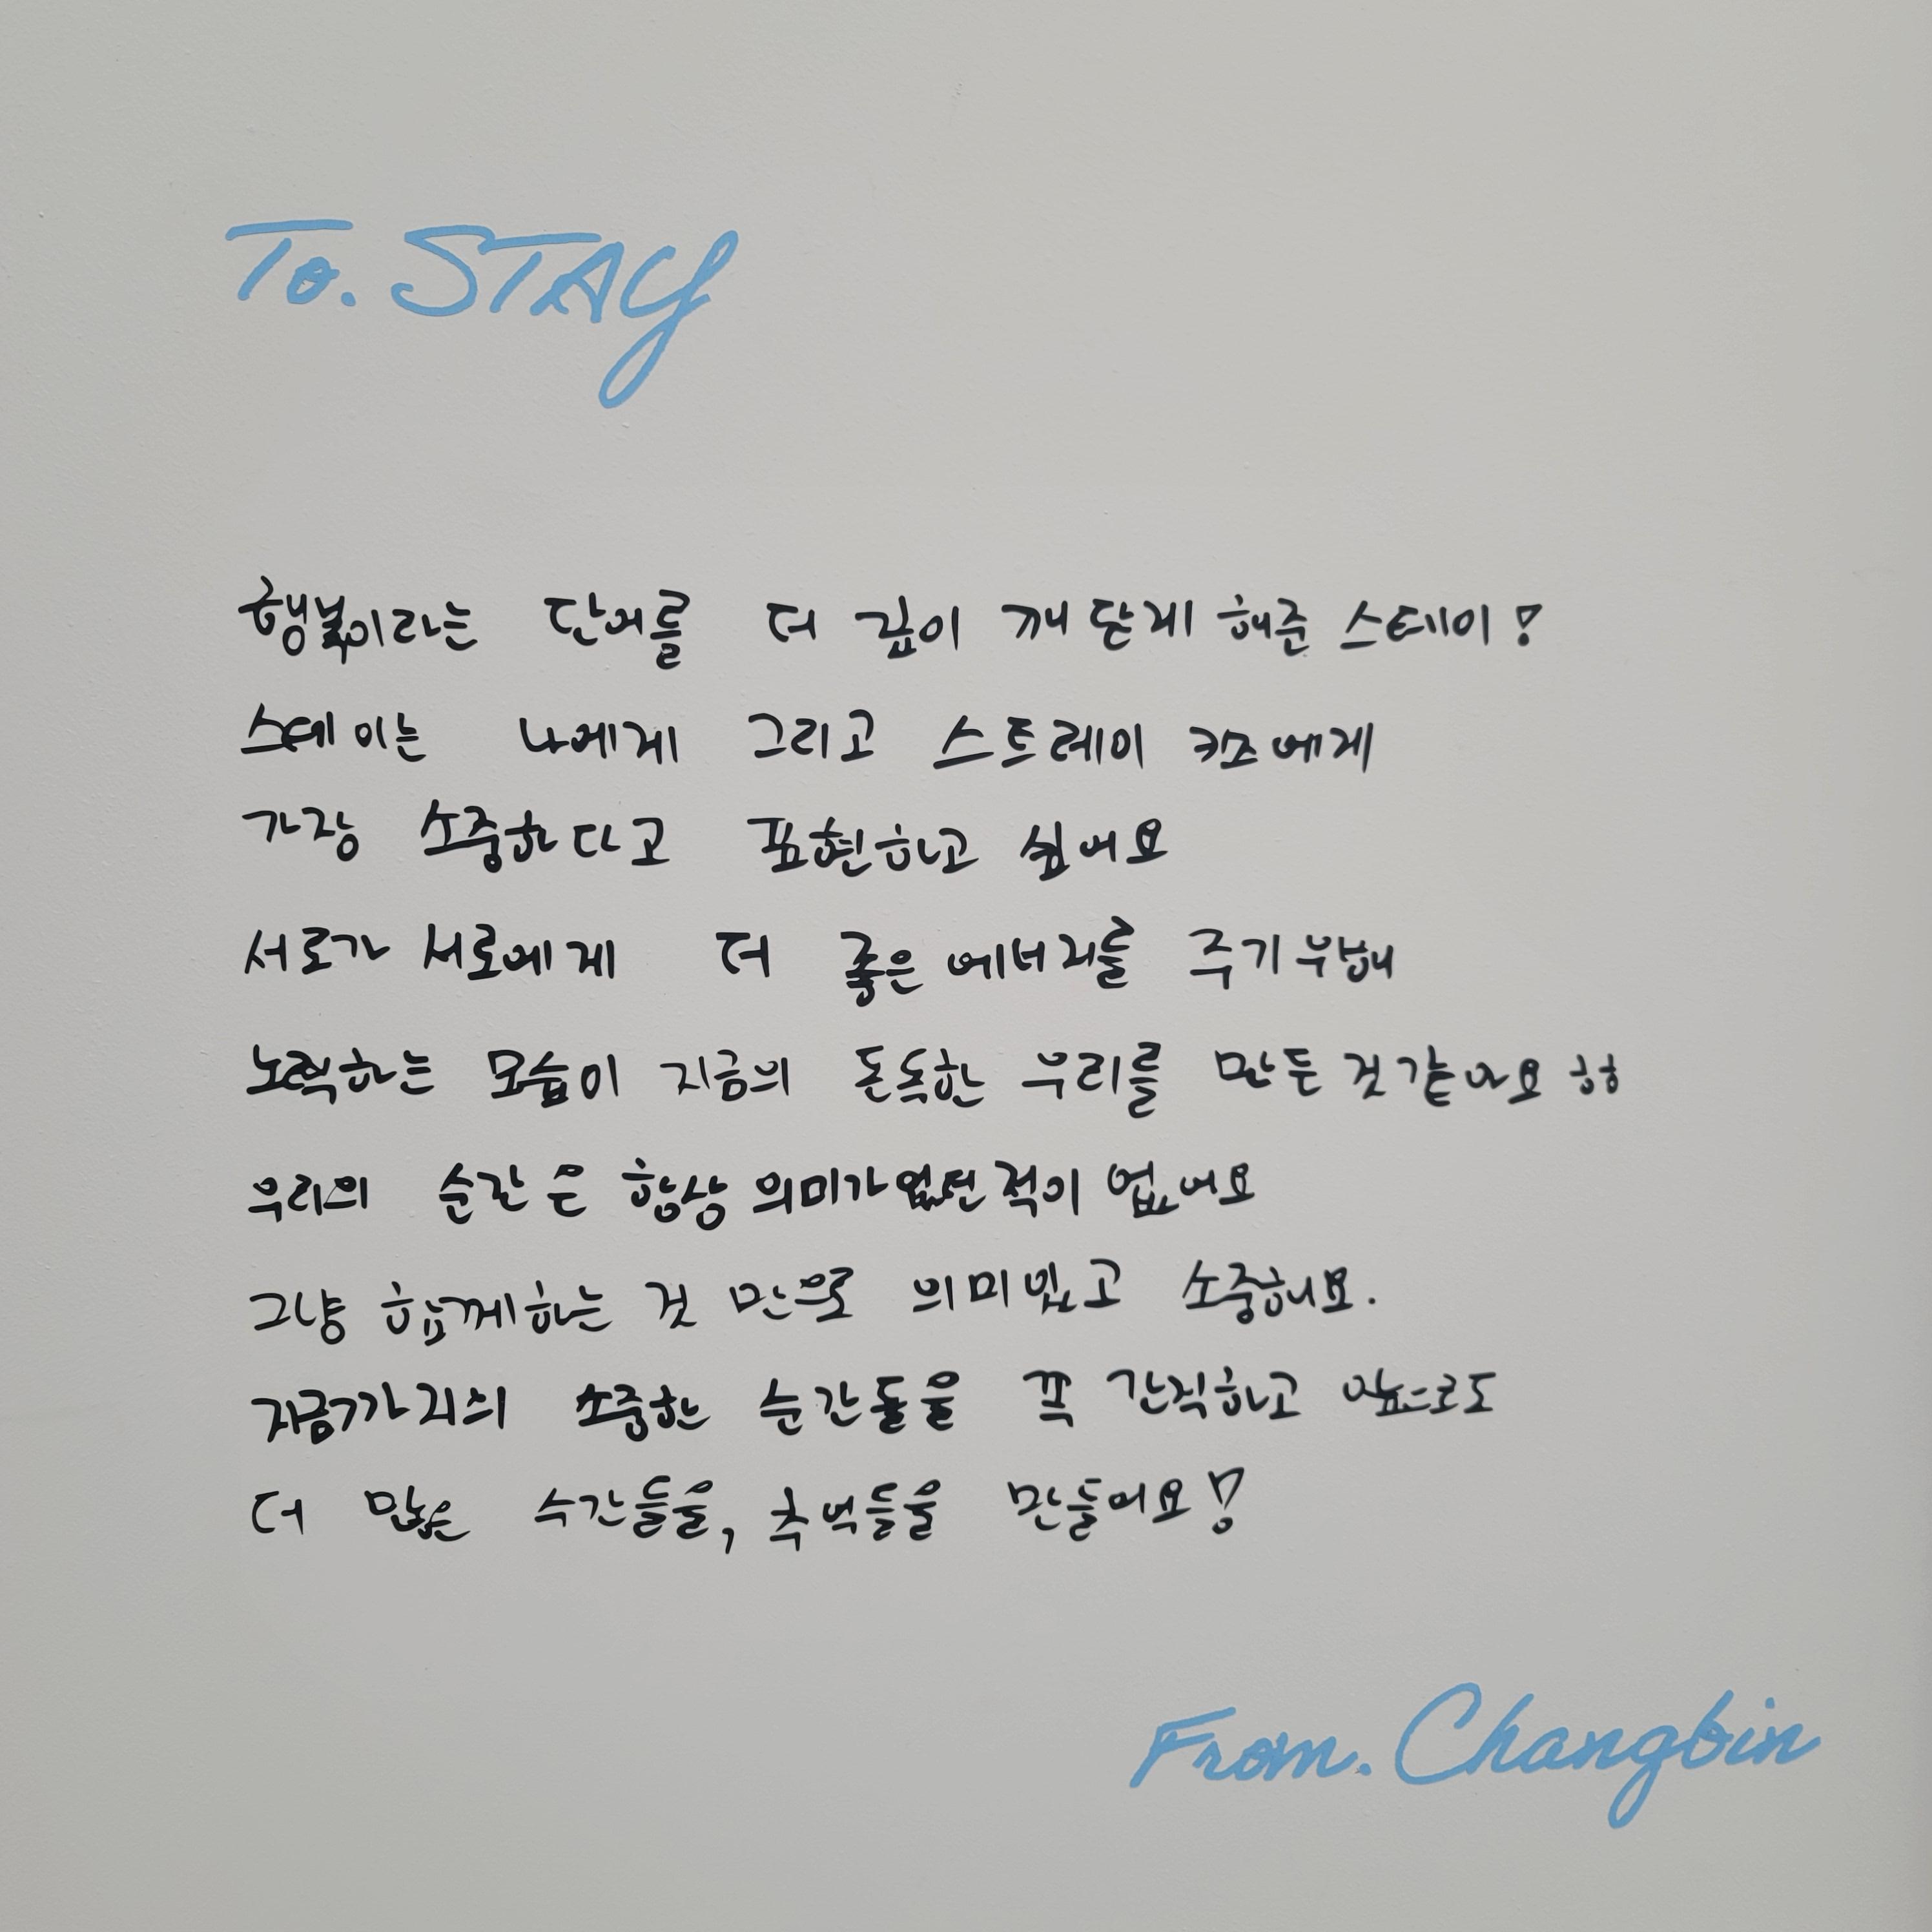 To. STAY
행복이라는 단어를 더 깊이 깨닫게 해준 스테이!
스테이는 나에게 그리고 스트레이 키즈에게
가장 소중하다고 표현하고 싶어요
서로가 서로에게 더 좋은 에너지를 주기 위해
노력하는 모습이 지금의 돈독한 우리를 만든 것 같아요 ㅎㅎ
우리의 순간은 항상 의미가 없던 적이 없어요
그냥 함께하는 것 만으로 의미있고 소중해요.
지금까지의 소중한 순간들을 꼭 간직하고 앞으로도
더 많은 순간들을, 추억들을 만들어요!
From. Changbin